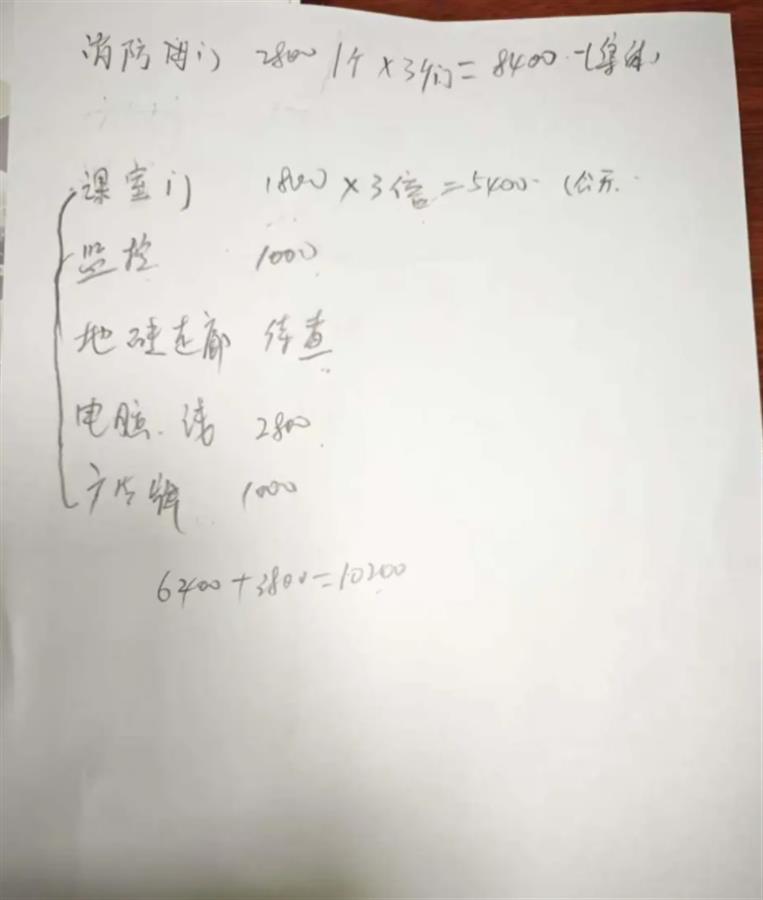 消防闸门 2800 1个×3个门=8400
课室门 1800×3倍=5400 (公开
监控 1000
地 连廊 待查
电脑、线 2800
广告牌 1000
6400+3800=10200